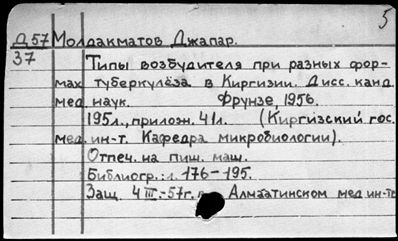 5
Д57 Молдакматов Джапар.
37 Типы возбудителя при разных фор-
мах туберкулёза в Киргизии. Дисс. канд.
мед. наук. Фрунзе, 1956.
195 л., прилож. 41 л. (Киргизский гос.
мед. ин-т. Кафедра микробиологии).
Отпеч. на пиш. маш.
Библиогр.: л. 176-195.
Защ. 4 III.-57г. Алматинском мед ин-те